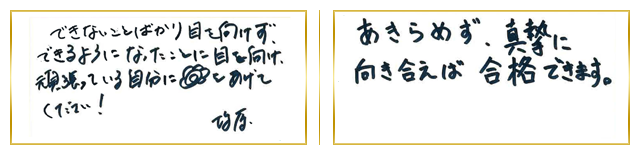 できないことばかり目を向けず、
できるようになったことに目を向け、
頑張っている自分に💮をあげて
ください！
あきらめず、真摯に
向き合えば 合格できます。